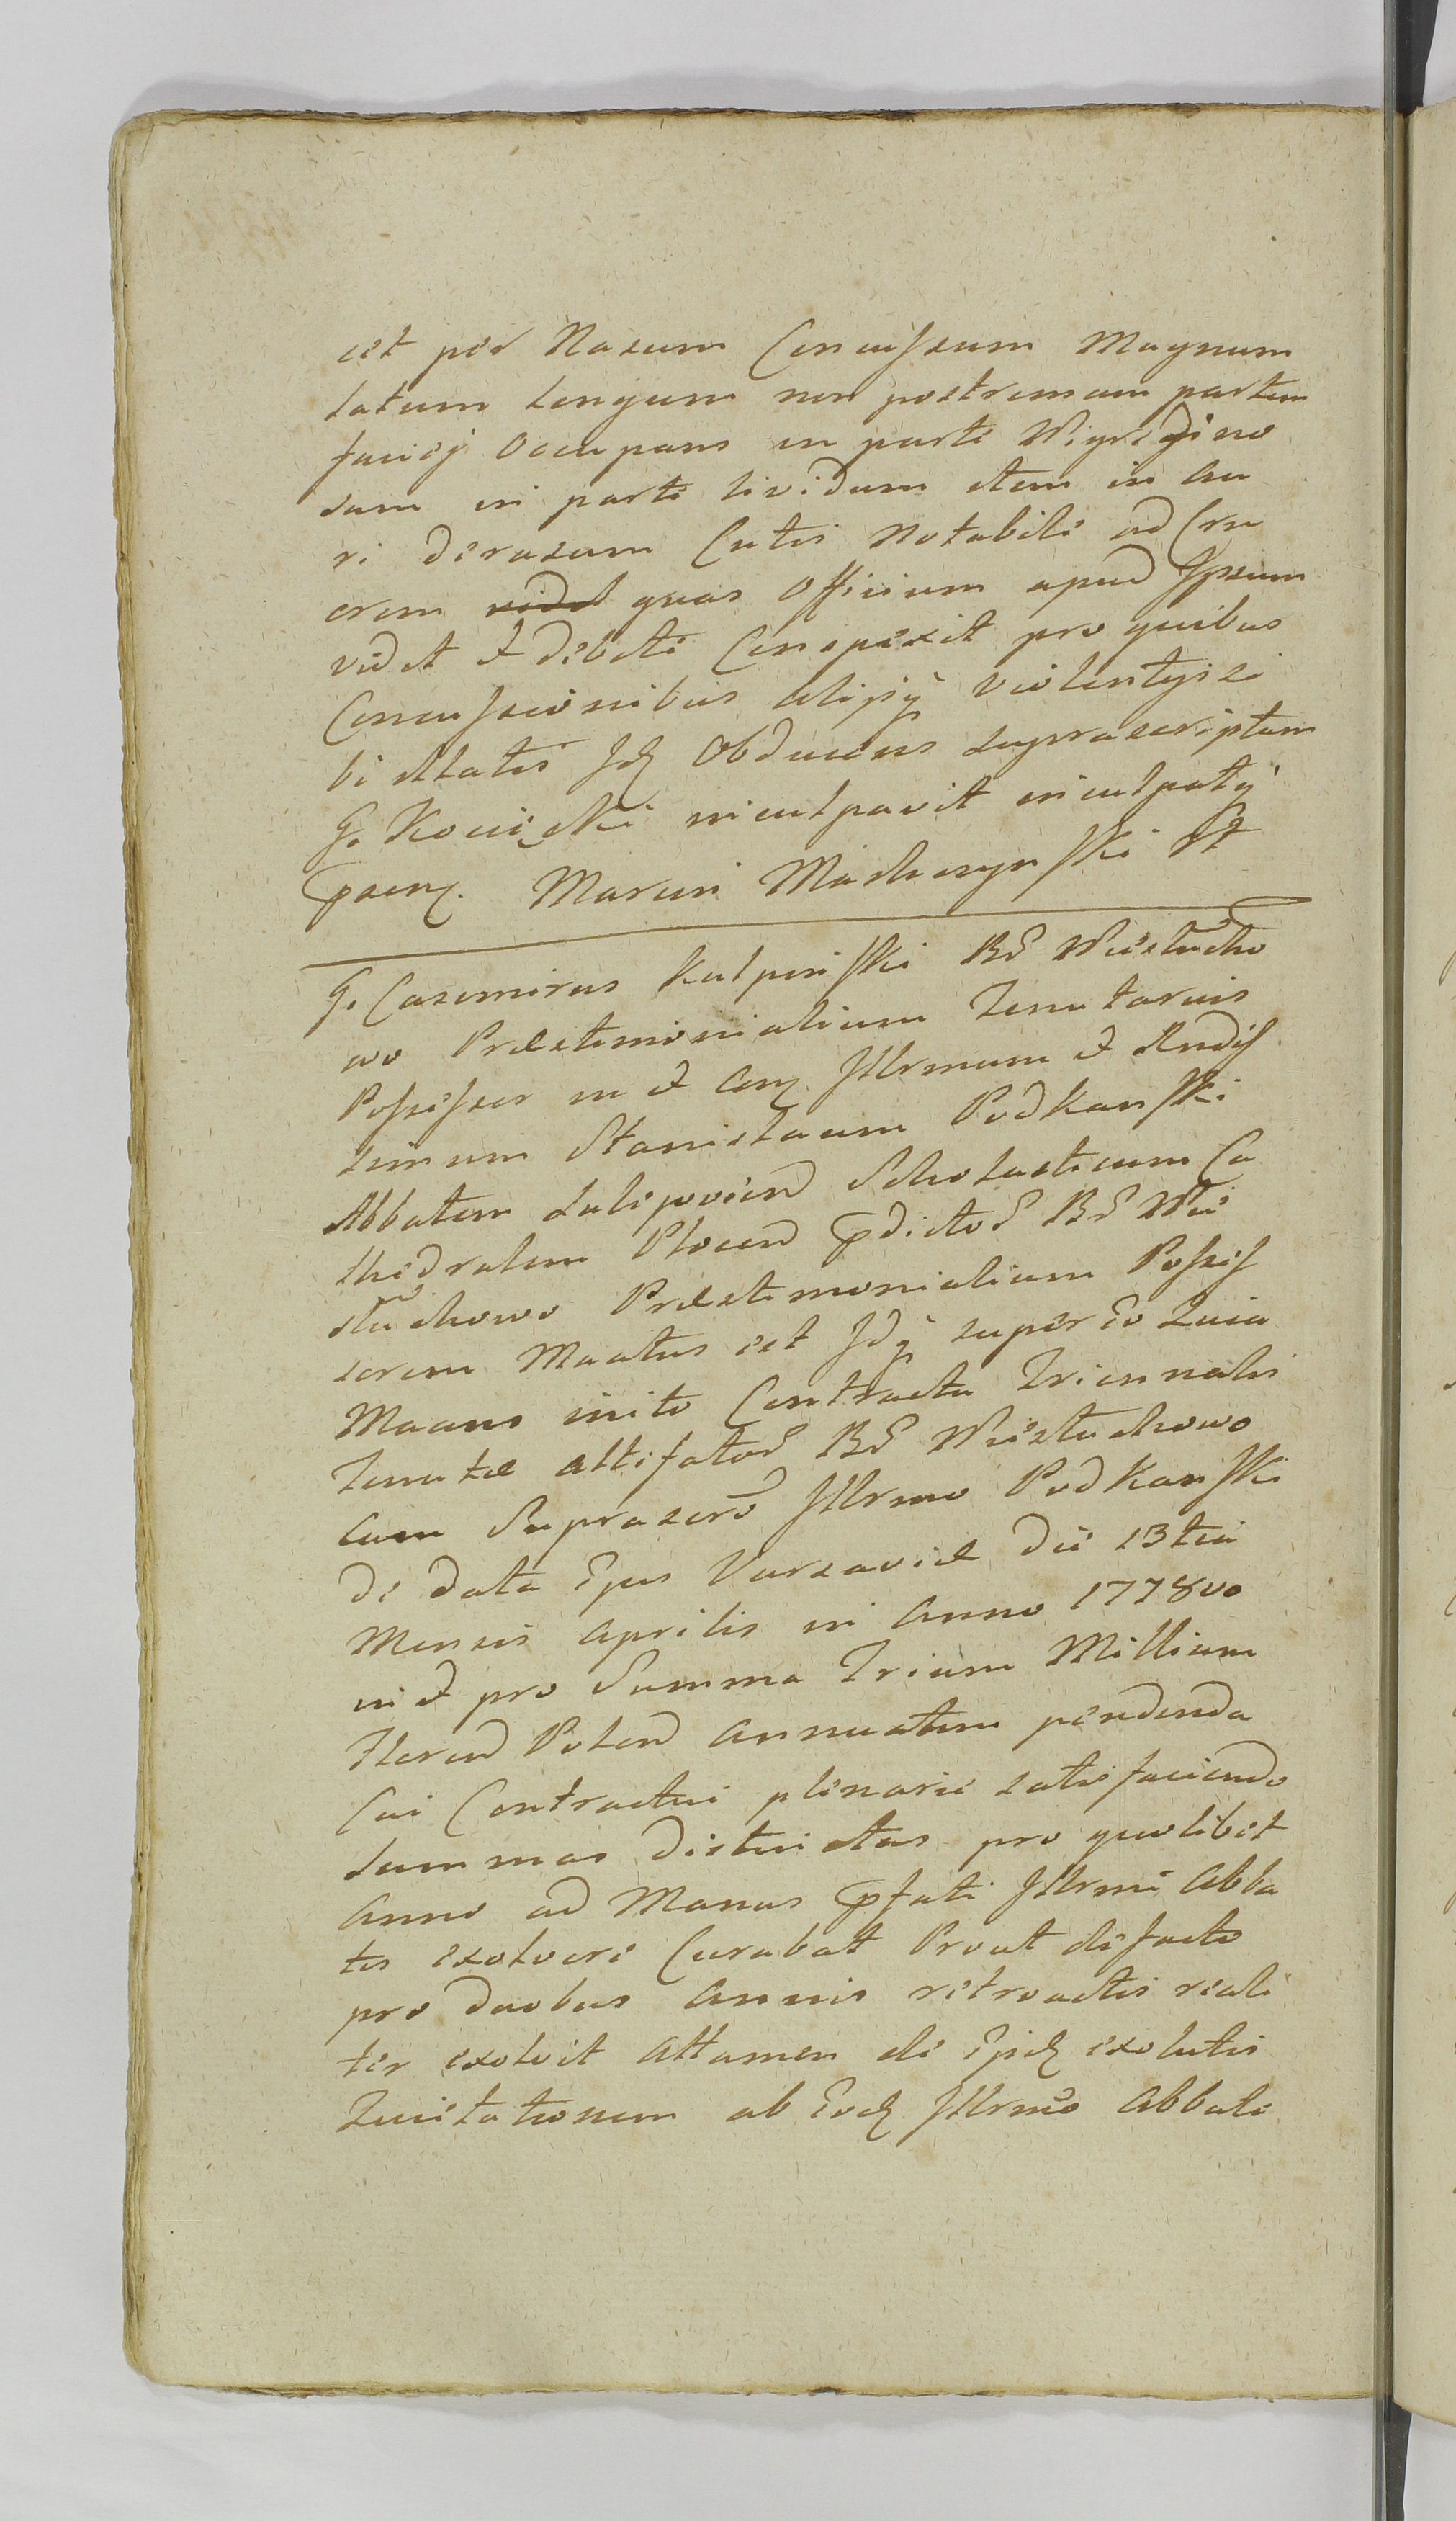 est per Nasum Concussum Magnum
latum longum non postremam partem
faciej Occupans in parte Nigredino
sum in parte lividum item in Au
ri derasum Cutis notabile ad Cru
orem videt quas Officium apud Ipsum
vidit et debite Conspexit pro quibus
Concussionibus alijsq violentijs si
bi illatis Idq Obducens suprascriptum
G. Kocięcki inculpavit inculpatq
Praenq. Marcin Machczynski Wt
G. Casimirus Kulpinski Bd Wieztucho
wo Praestimonialium Tenutarius
Possessor in et conq Illrmum et Rndis
simum Stanislaum Podkanski
Abbatem Sulejoviens Scholasticum Ca
thedralem Plocens Pdictos Bd Wie
stuchowo Praestimonialium Posses
sorem Mnatus est Idq super Eo Quia
Mnans inito Contractu Triennalis
Tenutae Attefatos Bd Wieztuchowo
cum Suprascro Illrmo Podkanski
de data Ejus Varsaviae die 13tia
Mensis Aprilis in Anno 1778vo
in et pro Summa Trium Millium
Floren Polon Annuatim pendenda
Cui Contractui plenarie satisfaciendo
Summas districtas pro quolibet
Anno ad Manus Pfati Illrmi Abba
tis exolvere Curabat Prout defacto
pro duobus Annis retroactis reali
ter exolvit Attamen de Ejsdq exolutis
Quietationem ab Eodq Illrmo Abbate